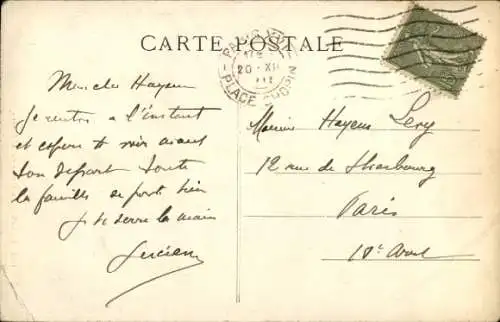 CARTE POSTALE
PARIS
20 - XII
PLACE CHOPIN
Mon cher Hayem
Je rentre à l'instant
et espère te voir avant
ton départ. Toute
la famille se porte bien
Je te serre la main
Lucien
Monsieur Hayem Levy
12 rue de Strasbourg
Paris
10e Arrt